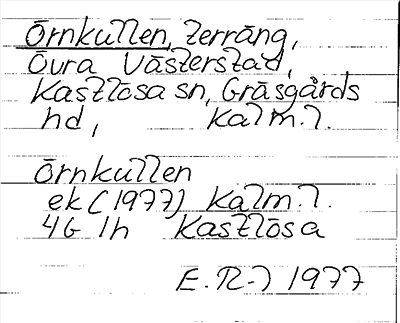 Örnkullen, terräng,
Övra Västerstad,
Kastlösa sn, Gräsgårds
hd, Kalm.l.
Örnkullen
ek (1977) Kalm.l.
4G 1h Kastlösa
E.R-) 1977